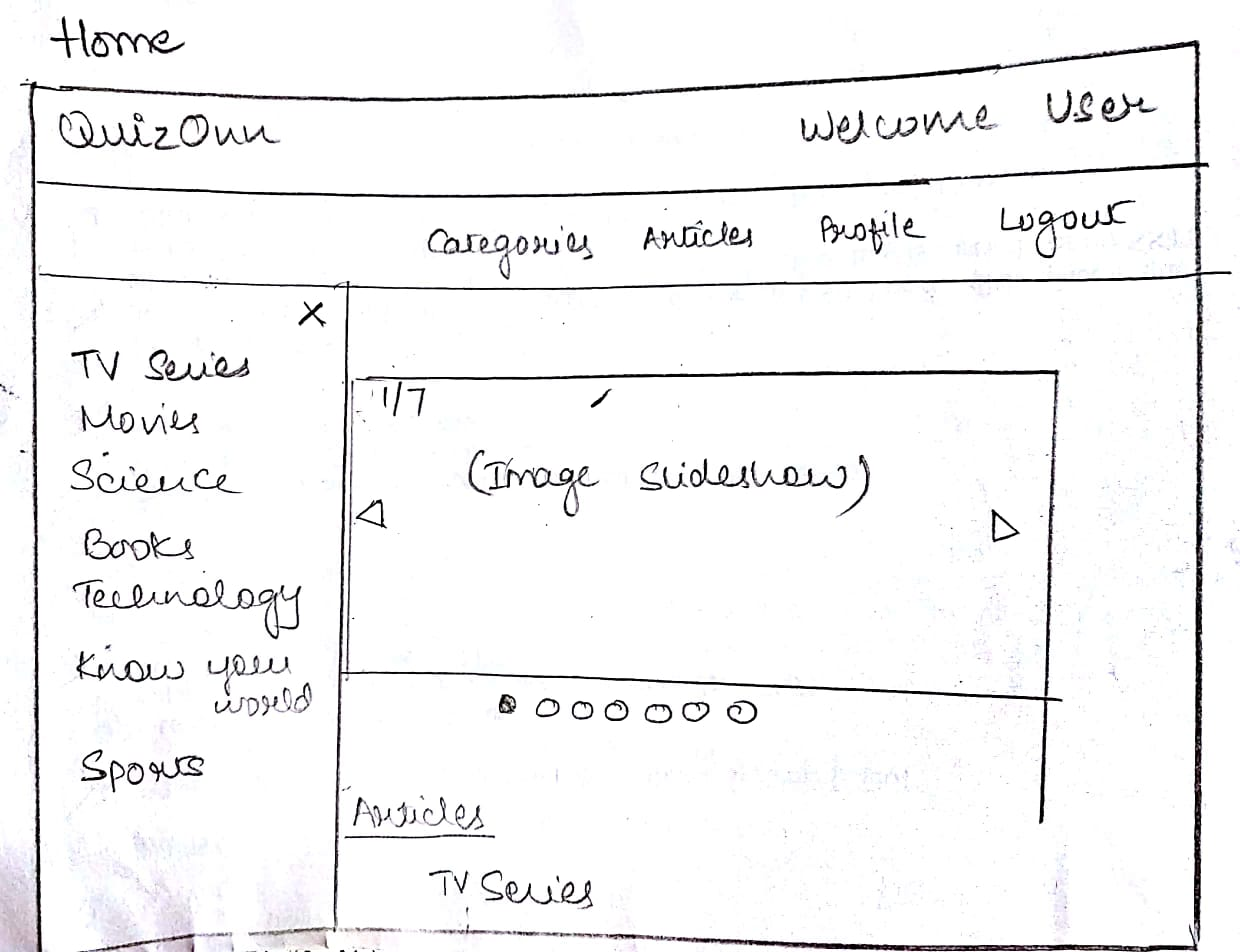 Home
QuizOnn
Welcome User
Categories Articles Profile Logout
X
TV Series
Movies
Science
Books
Technology
Know your
world
Sports
1/7
(Image Slideshow)
Articles
TV Series